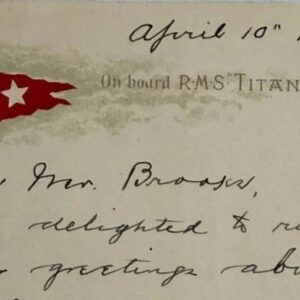 April 10th
On board R·M·S "TITAN
Mr. Brooks,
delighted to
greetings